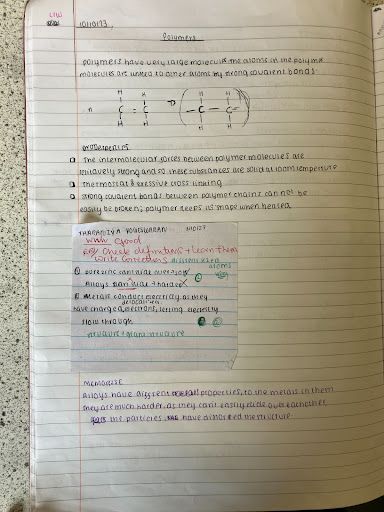 10/10/23
Polymers
polymers have very large molecules the atoms in the polymer
molecules are linked to other atoms by strong covalent bonds
H H H H
n C = C → C — C
H H H H
properties
the intermolecular forces between polymer molecules are
relatively strong and so these substances are solid at room temperature
cross linking
strong covalent bonds between polymer chains can not be
easily be broken; polymer keeps its shape when heated
WWW Good
EBI Check definitions + learn them
Write corrections different sized
atoms
Alloys harder
Metals conduct electricity as they
delocalised
have charged electrons, letting electricity
flow through
structure + giant structure
MEMORISE
Alloys have different properties, to the metals in them
they are much harder, as they can't easily slide over each other
the particles, have distorted the structure